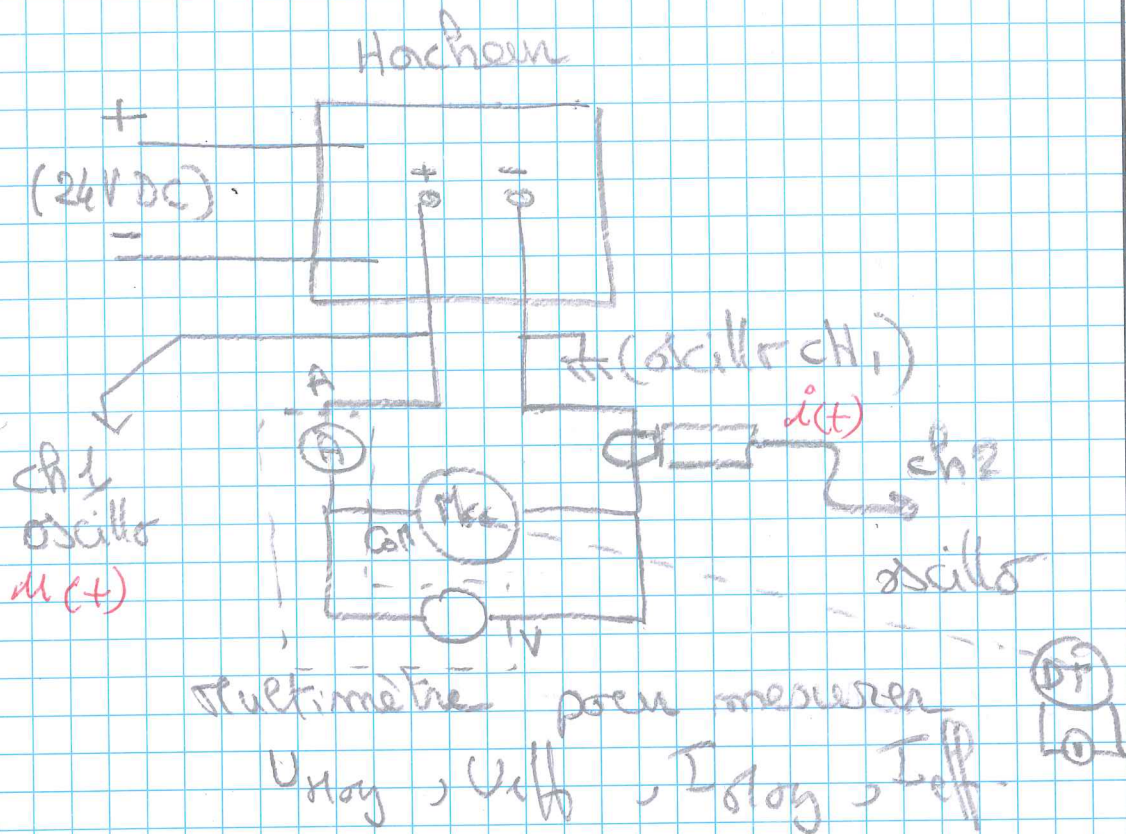 Hacheur
+
+ -
(24V DC)
-
(oscillo CH1)
A
i(t)
A
ch2
ch1
Mcc
oscillo
COM
oscillo
u(t)
V
DT
Multimètre pour mesurer
V
UMoy, Ueff, IMoy, Ieff.